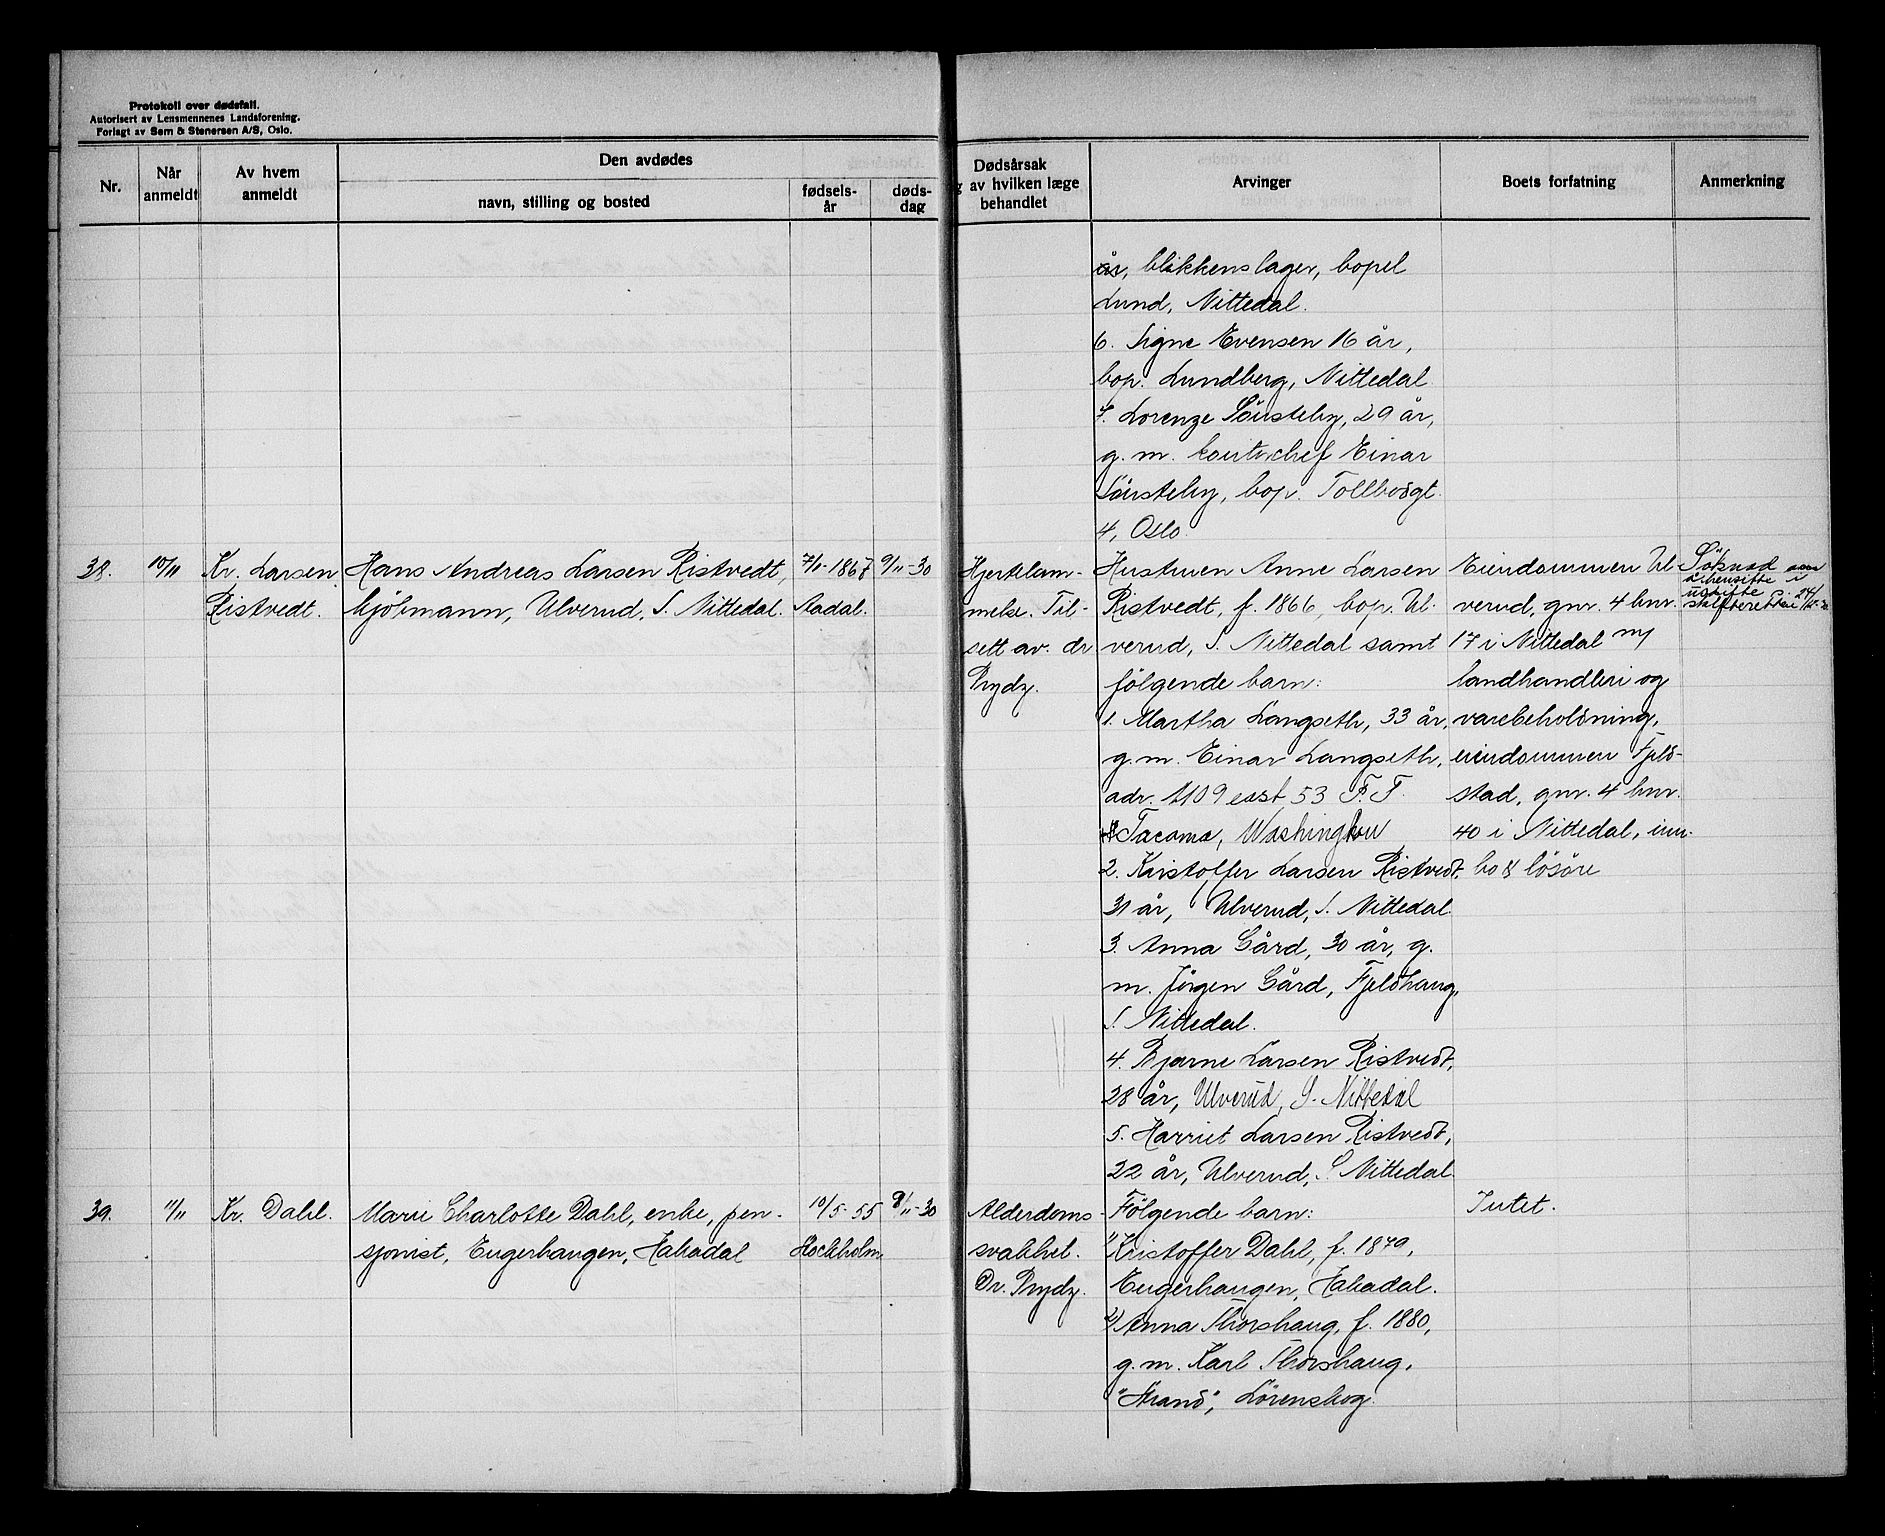 Protokoll over dødsfall.
Autorisert av Lensmennenes Landsforening.
Forlagt av Sem & Stenersen A/S, Oslo.
Nr.
Når
anmeldt
Av hvem
anmeldt
Den avdødes
navn, stilling og bosted
fødsels-
år
døds-
dag
Dødsårsak
g av hvilken læge
behandlet
Arvinger
Boets forfatning
Anmerkning
år, blikkenslager, bopel
Lund, Nittedal.
6. Signe Evensen 16 år,
bop. Lundberg, Nittedal
7. Lorenze Sörsteby, 29 år,
g. m. kontorchef Einar
Sörsteby, bop. Tollbodgt.
4, Oslo
38.
10/11
Kr. Larsen
Ristvedt.
Hans Andreas Larsen Ristvedt,
kjöbmann, Ulverud, S. Nittedal.
1867
Aadal.
9/11-30
Hjertelam-
melse. Til-
sett av. dr
Prydz.
Hustruen Anne Larsen
Ristvedt, f. 1866, bop. Ul-
verud, S. Nittedal samt
fölgende barn:
1. Martha Langseth, 33 år,
g. m. Einar Langseth,
adr. 1109 east 53
Tacoma, Washington
2. Kristoffer Larsen Ristvedt,
31 år, Ulverud, S. Nittedal.
3. Anna Gård, 30 år, g.
m. Jörgen Gård, Fjeldhaug,
S. Nittedal.
4. Bjarne Larsen Ristvedt,
28 år, Ulverud, S. Nittedal
5. Harriet Larsen Ristvedt,
22 år, Ulverud, S Nittedal
Eiendommen Ul-
verud, gnr. 4 bnr.
17 i Nittedal m/
landhandleri og
varebeholdning,
eiendommen Fjeld-
stad, gnr. 4 bnr.
40 i Nittedal, inn-
bo & lösöre
Söknad om
uskifte
skifteretten
39.
11/11
Kr. Dahl.
Marie Charlotte Dahl, enke, pen-
sjonist, Engerhaugen, Hakadal
10/5-55
Stockholm
8/11-30
Alderdoms-
svakhet.
Dr. Prydz.
Fölgende barn:
1) Kristoffer Dahl, f. 1879,
Engerhaugen, Hakadal.
2) Anna Thorshaug, f. 1880,
g. m. Karl Thorshaug,
"Strand", Lörenskog.
Intet.